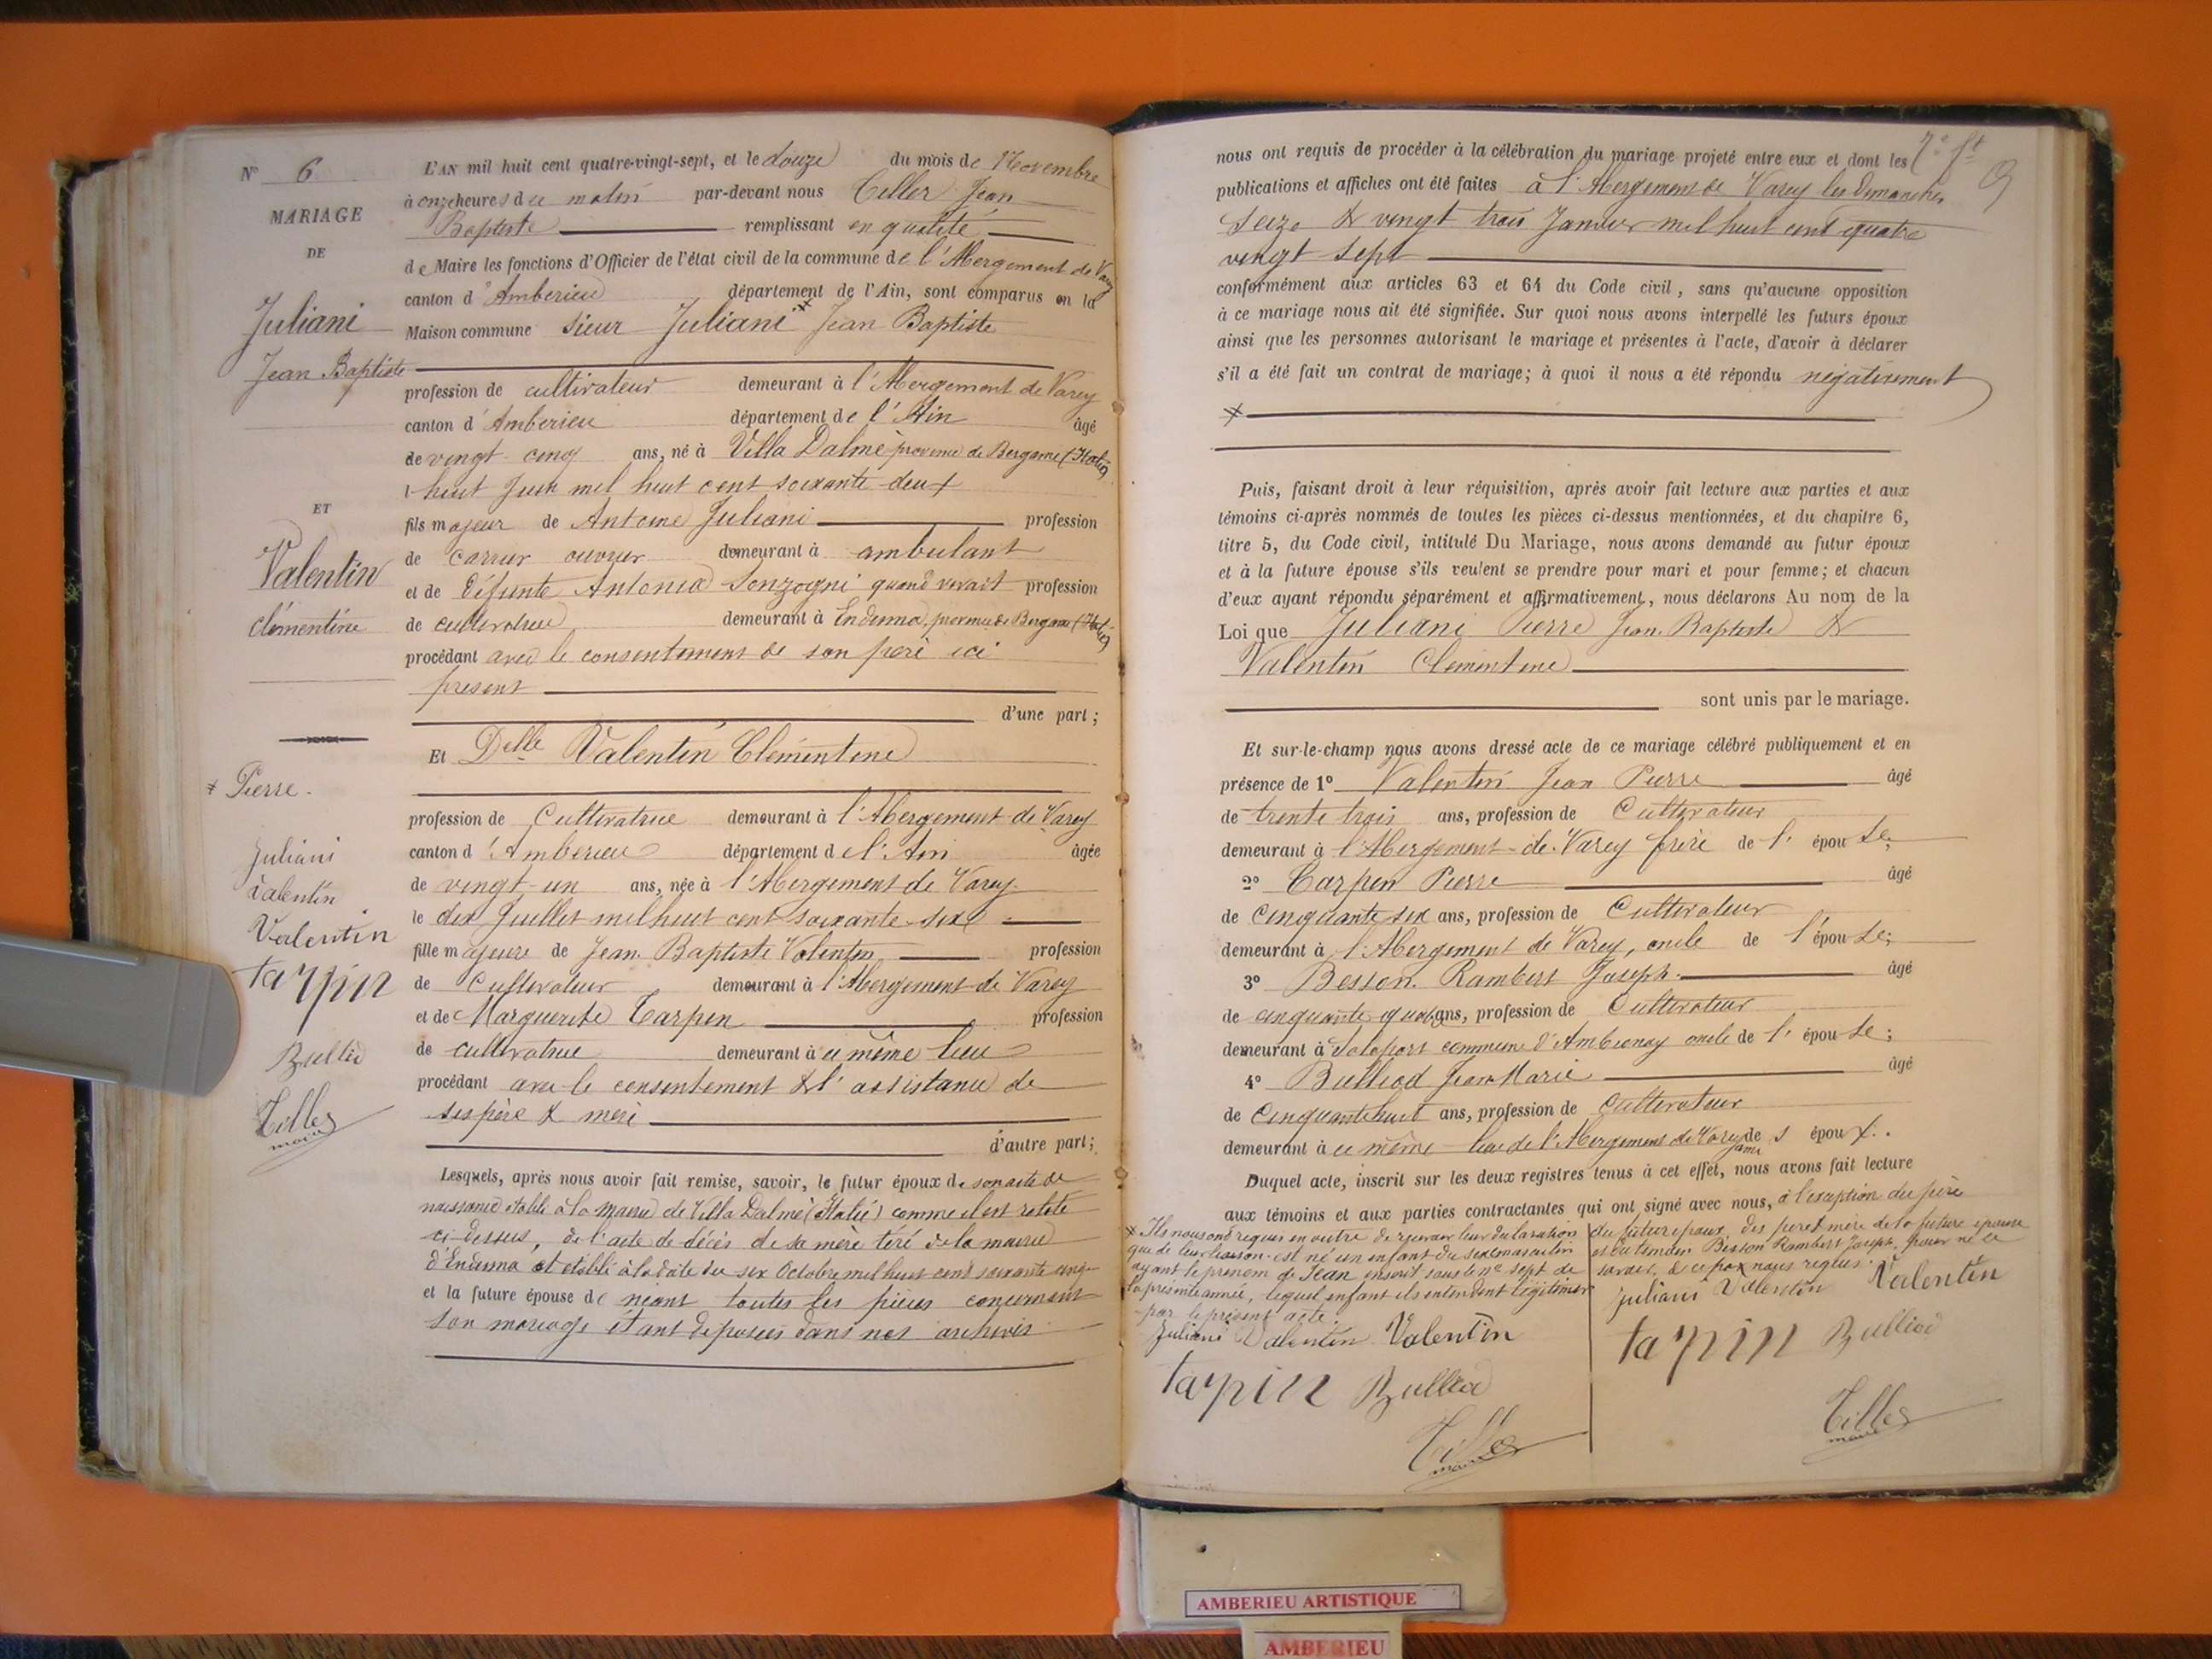 N° 6
MARIAGE
DE
Juliani
Jean Baptiste
ET
Valentin
clémentine
* Pierre.
Juliani
Valentin
Valentin
tarpin
Bulliod
Tiller
maire
L'AN mil huit cent quatre-vingt-sept, et le douze du mois de Novembre
à onze heures du matin par-devant nous Tiller Jean
Baptiste remplissant en qualité
de Maire les fonctions d'Officier de l'état civil de la commune de l'Abergement de Varey
canton d'Amberieu département de l'Ain, sont comparus en la
Maison commune sieur Juliani * Jean Baptiste
profession de cultivateur demeurant à l'Abergement de Varey
canton d'Amberieu département de l'Ain âgé
de vingt-cinq ans, né à Villa Dalmè province de Bergame (Italie)
huit Juin mil huit cent soixante-deux
fils majeur de Antoine Juliani profession
de carrier ouvrier demeurant à ambulant
et de défunte Antonia Sonzogni quand vivait profession
de cultivatrice demeurant à Endenna, province de Bergame (Italie)
procédant avec le consentement de son père ici
présent
d'une part;
Et Delle Valentin Clémentine
profession de Cultivatrice demeurant à l'Abergement de Varey
canton d'Amberieu département de l'Ain âgée
de vingt-un ans, née à l'Abergement de Varey
le dix Juillet mil huit cent soixante-six
fille majeure de Jean Baptiste Valentin profession
de Cultivateur demeurant à l'Abergement de Varey
et de Marguerite Tarpin profession
de cultivatrice demeurant à ce même lieu
procédant avec le consentement & l'assistance de
ses père & mère
d'autre part;
Lesquels, après nous avoir fait remise, savoir, le futur époux de son acte de
naissance établi à la mairie de Villa Dalmè (Italie) comme il est relaté
ci-dessus, de l'acte de décès de sa mère tiré de la mairie
d'Endenna et établi à la date du six Octobre mil huit cent soixante cinq
et la future épouse de néant toutes les pièces concernant
son mariage étant déposées dans nos archives
7e ft
nous ont requis de procéder à la célébration du mariage projeté entre eux et dont les
publications et affiches ont été faites à l'Abergement de Varey les dimanches
seize & vingt trois Janvier mil huit cent quatre
vingt sept
conformément aux articles 63 et 64 du Code civil, sans qu'aucune opposition
à ce mariage nous ait été signifiée. Sur quoi nous avons interpellé les futurs époux
ainsi que les personnes autorisant le mariage et présentes à l'acte, d'avoir à déclarer
s'il a été fait un contrat de mariage; à quoi il nous a été répondu négativement
*
Puis, faisant droit à leur réquisition, après avoir fait lecture aux parties et aux
témoins ci-après nommés de toutes les pièces ci-dessus mentionnées, et du chapitre 6,
titre 5, du Code civil, intitulé Du Mariage, nous avons demandé au futur époux
et à la future épouse s'ils veulent se prendre pour mari et pour femme; et chacun
d'eux ayant répondu séparément et affirmativement, nous déclarons Au nom de la
Loi que Juliani Pierre Jean Baptiste &
Valentin Clémentine
sont unis par le mariage.
Et sur-le-champ nous avons dressé acte de ce mariage célébré publiquement et en
présence de 1° Valentin Jean Pierre âgé
de trente trois ans, profession de Cultivateur
demeurant à l'Abergement-de-Varey frère de l'épouse;
2° Tarpin Pierre âgé
de cinquante six ans, profession de Cultivateur
demeurant à l'Abergement de Varey, oncle de l'épouse;
3° Besson Rambert Joseph âgé
de cinquante quatre ans, profession de Cultivateur
demeurant à Salaport commune d'Ambronay oncle de l'épouse;
4° Bulliod Jean Marie âgé
de Cinquante huit ans, profession de Cultivateur
demeurant à ce même lieu de l'Abergement de Varey ami des époux.
Duquel acte, inscrit sur les deux registres tenus à cet effet, nous avons fait lecture
aux témoins et aux parties contractantes qui ont signé avec nous, à l'exception du père
du futur époux, des père & mère de la future épouse
et du témoin Besson Rambert Joseph, pour ne le
savoir, de ce par nous requis.
Juliani Valentin Valentin
tarpin Bulliod
Tiller
maire
* Ils nous ont requis en outre de recevoir leur déclaration
que de leur liaison est né un enfant du sexe masculin
ayant le prénom de Jean inscrit sous le n° sept de
la présente année, lequel enfant ils entendent légitimer
par le présent acte.
Juliani Valentin Valentin
tarpin Bulliod
Tiller
maire
AMBERIEU ARTISTIQUE
AMBERIEU